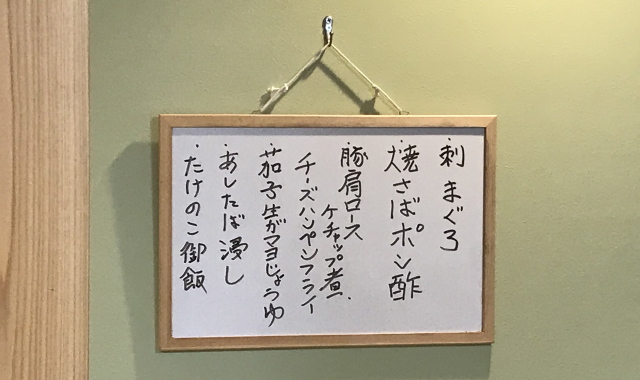 ・刺 まぐろ
・焼さばポン酢
・豚肩ロース
ケチャップ煮
・チーズハンペンフライ
・茄子生がマヨじょうゆ
・あしたば浸し
・たけのこ御飯